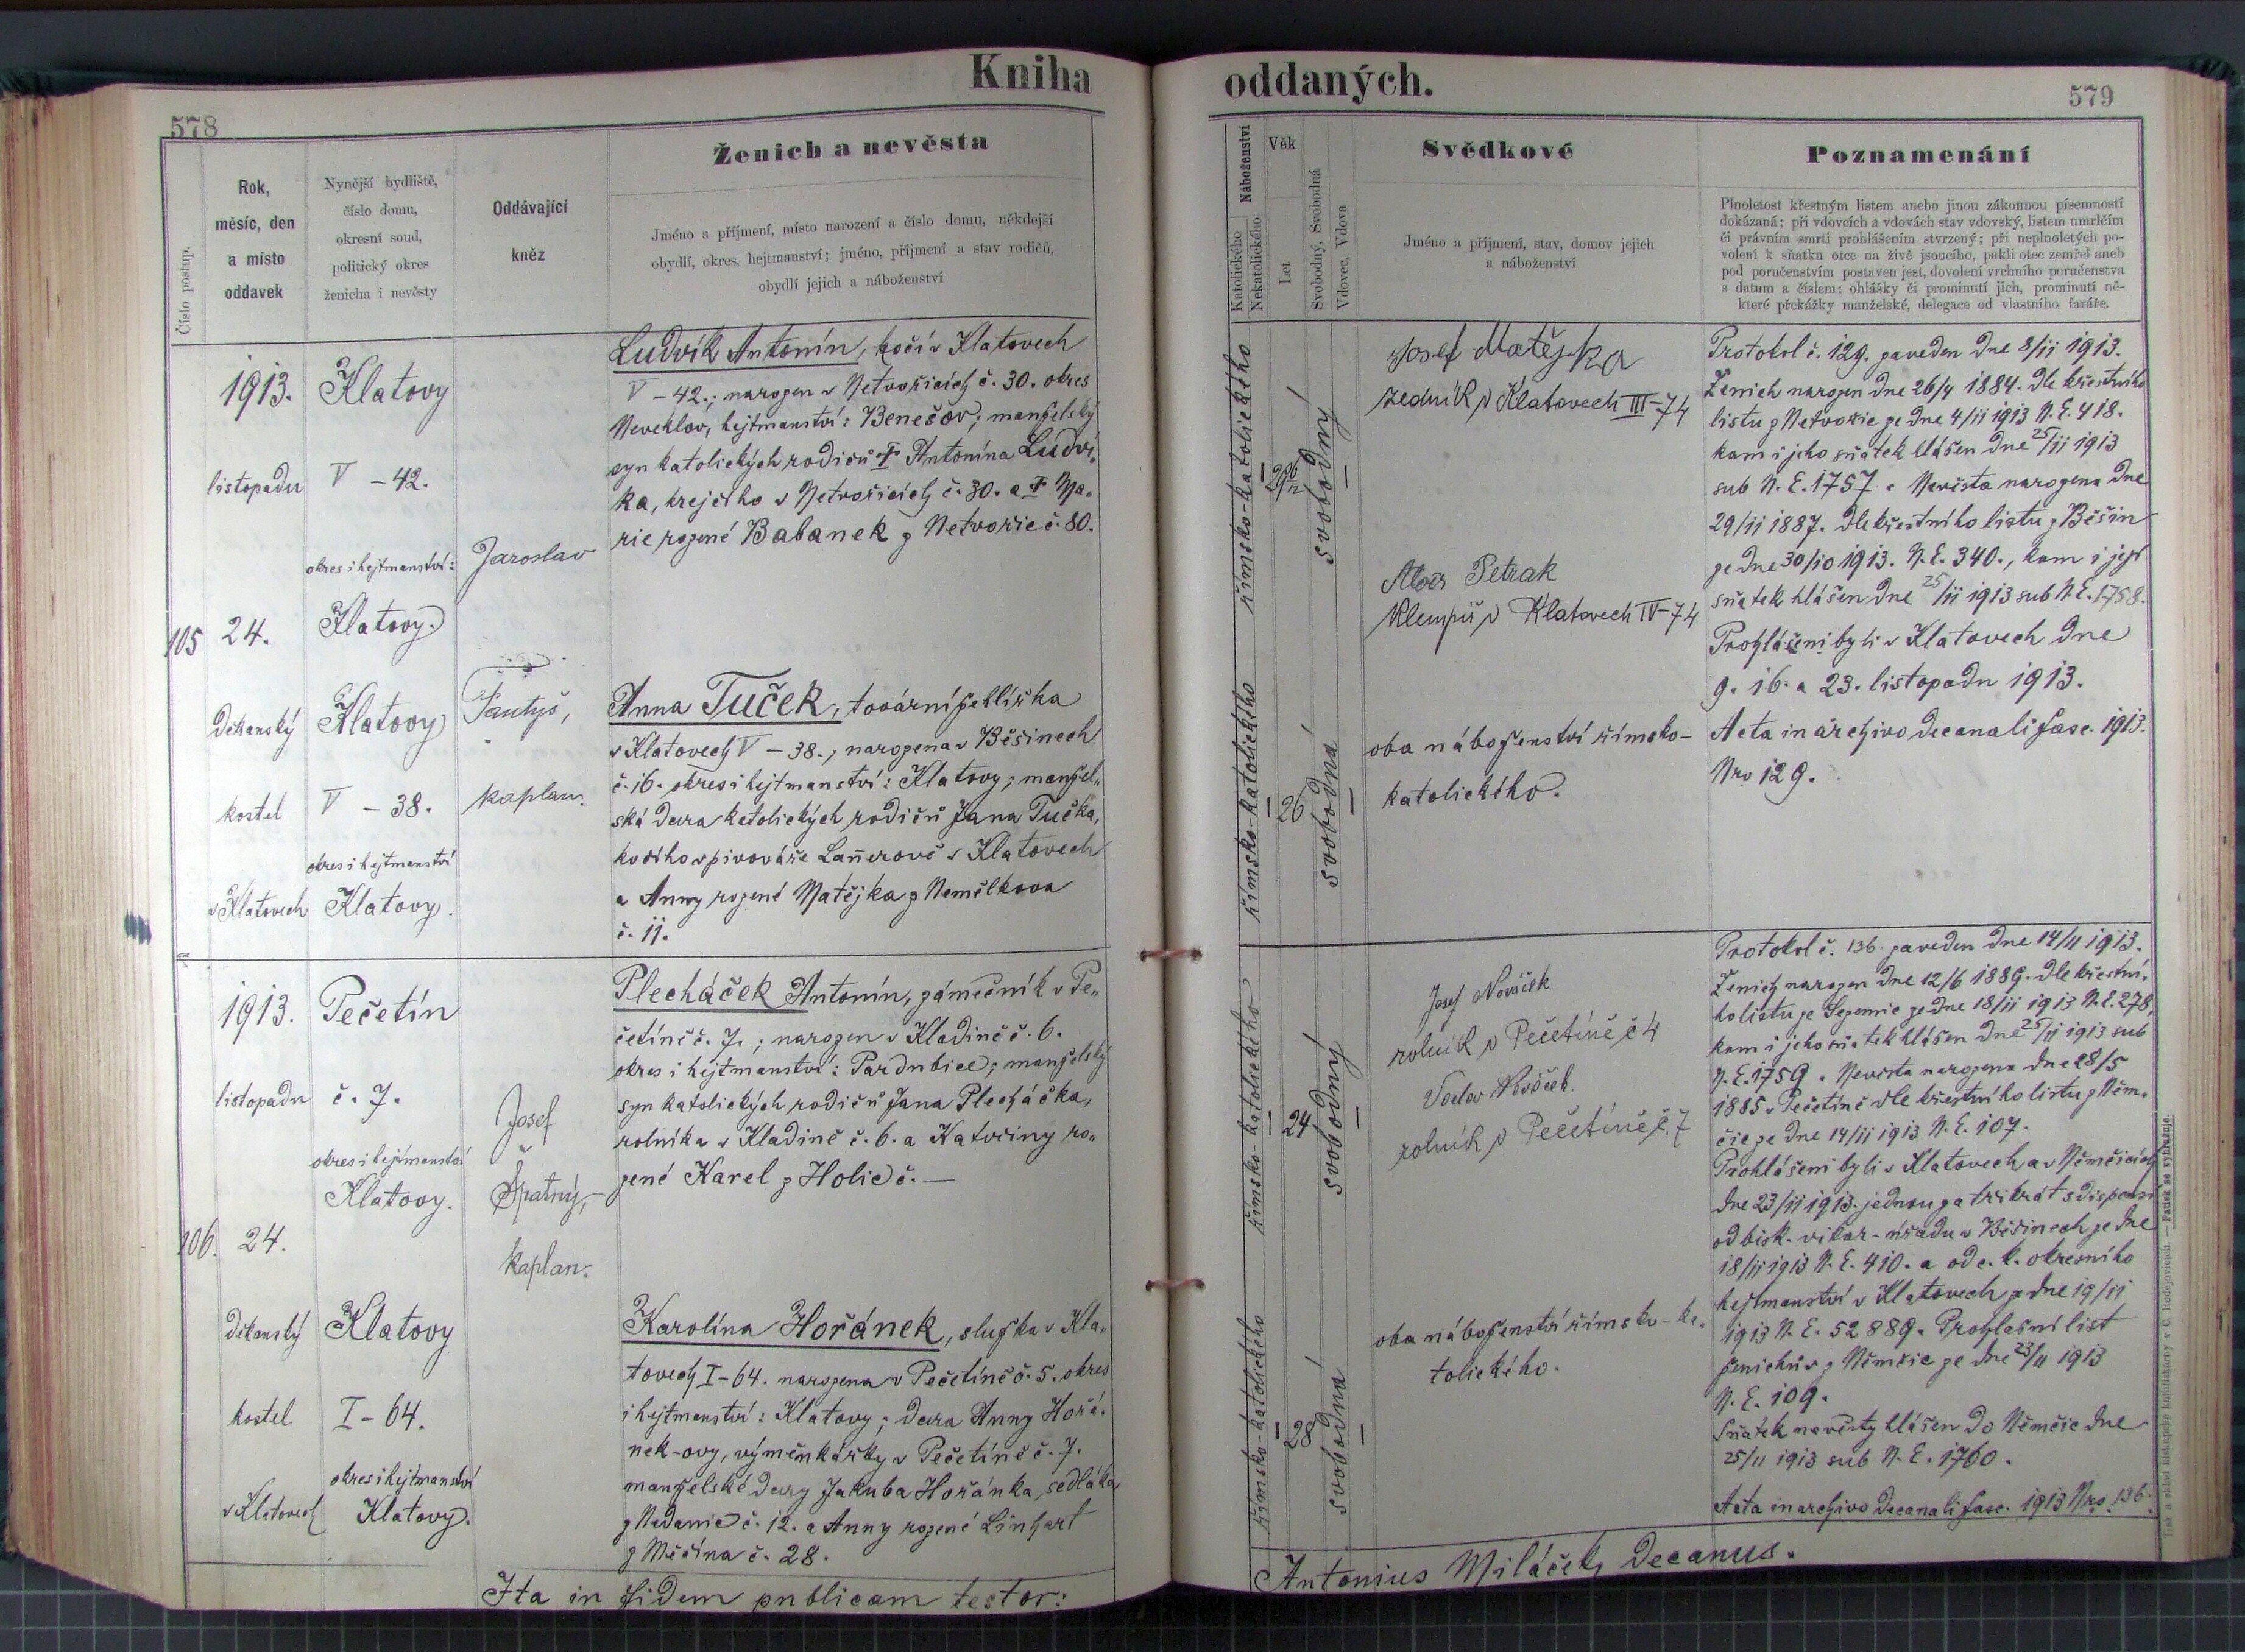 Kniha oddaných.
578
579
Číslo postup.
Rok,
měsíc, den
a místo
oddavek
Nynější bydliště,
číslo domu,
okresní soud,
politický okres
ženicha i nevěsty
Oddávající
kněz
Ženich a nevěsta
Jméno a příjmení, místo narození a číslo domu, někdejší
obydlí, okres, hejtmanství; jméno, příjmení a stav rodičů,
obydlí jejich a náboženství
Náboženství
Katolického
Nekatolického
Věk
Let
Svobodný, Svobodná
Vdovec, Vdova
Svědkové
Jméno a příjmení, stav, domov jejich
a náboženství
Poznamenání
Plnoletost křestným listem anebo jinou zákonnou písemností
dokázaná; při vdovcích a vdovách stav vdovský, listem umrlčím
či právním smrti prohlášením stvrzený; při neplnoletých po-
volení k sňatku otce na živě jsoucího, pakli otec zemřel aneb
pod poručenstvím postaven jest, dovolení vrchního poručenstva
s datum a číslem; ohlášky či prominutí jich, prominutí ně-
které překážky manželské, delegace od vlastního faráře.
105
1913.
listopadu
24.
děkanský
kostel
v Klatovech
Klatovy
V - 42.
okres i hejtmanství:
Klatovy.
Klatovy
V - 38.
okres i hejtmanství
Klatovy.
Jaroslav
Pantyš,
kaplan.
Ludvík Antonín, kočí v Klatovech
V - 42.; narozen v Netvořicích č. 30. okres
Neveklov, hejtmanství: Benešov; manželský
syn katolických rodičů † Antonína Ludví-
ka, krejčího v Netvořicích č. 30. a † Ma-
rie rozené Babanek z Netvořic č. 80.
Anna Tuček, tovární žehlířka
v Klatovech V - 38.; narozena v Běšinech
č. 16. okres i hejtmanství: Klatovy; manžel-
ská dcera katolických rodičů Jana Tučka,
kočího v pivováře Lannerově v Klatovech
a Anny rozené Matějka z Nemělkova
č. 11.
římsko-katolického
29
svobodný
římsko-katolického
26
svobodná
Josef Matějka
zedník v Klatovech III-74
Petrak
klempíř v Klatovech IV-74
oba náboženství římsko-
katolického.
Protokol č. 129. zaveden dne 8/11 1913.
Ženich narozen dne 26/4 1884. dle křestního
listu z Netvořic ze dne 4/11 1913 N. E. 418.
kam i jeho sňatek hlášen dne 25/11 1913
sub N. E. 1757. Nevěsta narozena dne
29/11 1887. dle křestního listu z Běšin
ze dne 30/10 1913. N. E. 340., kam i její
sňatek hlášen dne 25/11 1913 sub N. E. 1758.
Prohlášeni byli v Klatovech dne
9. 16. a 23. listopadu 1913.
Acta in archivo decanali fasc. 1913.
Nro 129.
106.
1913.
listopadu
24.
děkanský
kostel
v Klatovech
Pečetín
č. 7.
okres i hejtmanství
Klatovy.
Klatovy
I - 64.
okres i hejtmanství
Klatovy.
Josef
Špatný,
kaplan.
Plecháček Antonín, zámečník v Pe-
četíně č. 7.; narozen v Kladině č. 6.
okres i hejtmanství: Pardubice; manželský
syn katolických rodičů Jana Plecháčka,
rolníka v Kladině č. 6. a Kateřiny ro-
zené Karel z Holic č. —
Karolína Hořánek, služka v Kla-
tovech I-64. narozena v Pečetíně č. 5. okres
i hejtmanství: Klatovy; dcera Anny Hořá-
nek-ovy, výměnkářky v Pečetíně č. 7.
manželské dcery Jakuba Hořánka, sedláka
z Nedanic č. 12. a Anny rozené Linhart
z Měčína č. 28.
římsko-katolického
24
svobodný
římsko-katolického
28
svobodná
Josef Nováček
rolník v Pečetíně č 4
Václav
rolník v Pečetíně č. 7
oba náboženství římsko-ka-
tolického.
Protokol č. 136. zaveden dne 14/11 1913.
Ženich narozen dne 12/6 1889. dle křestní-
ho listu ze Sezemic ze dne 18/11 1913 N. E. 278,
kam i jeho sňatek hlášen dne 25/11 1913 sub
N. E. 1759. Nevěsta narozena dne 28/5
1885 v Pečetíně dle křestního listu z Něm-
čic ze dne 14/11 1913 N. E. 107.
Prohlášeni byli v Klatovech a v Němčicích
dne 23/11 1913. jednou za třikrát s dispensí
od bisk. vikar. úřadu v Běšinech ze dne
18/11 1913 N. E. 410. a od c. k. okresního
hejtmanství v Klatovech ze dne 19/11
1913 N. E. 52889. Prohlašní list
ženichův z Němčic ze dne 23/11 1913
N. E. 109.
Sňatek nevěsty hlášen do Němčic dne
25/11 1913 sub N. E. 1760.
Acta in archivo decanali fasc. 1913 Nro. 136.
Ita in fidem publicam testor:
Antonius Miláček, decanus.
Tisk a sklad biskupské knihtiskárny v Č. Budějovicích. — Patisk se vyhražuje.